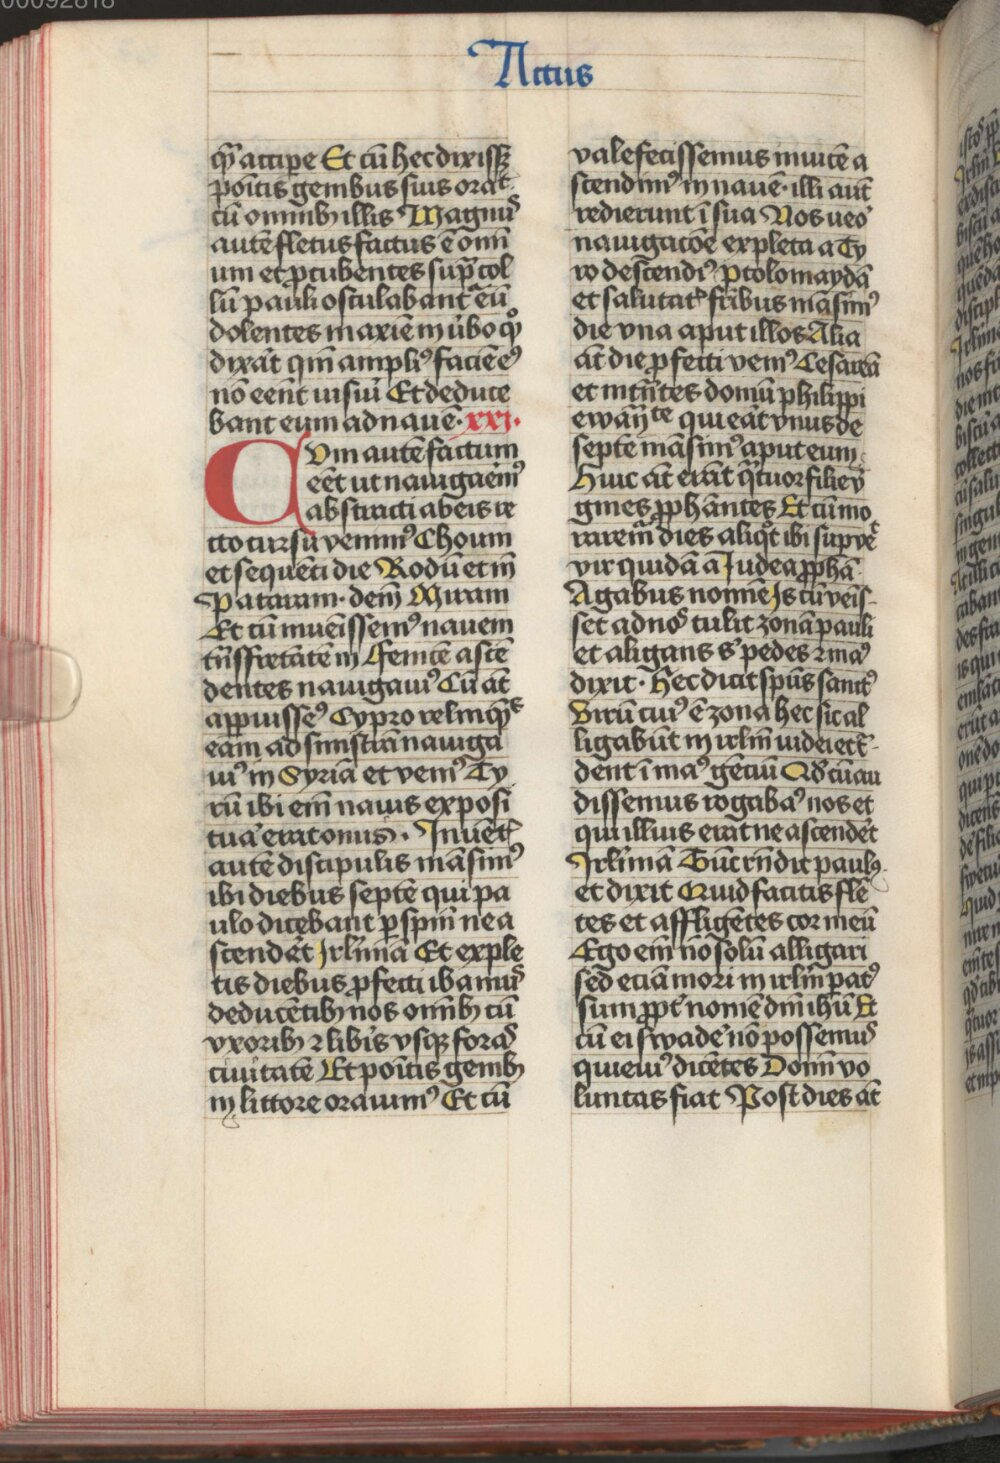 00092818
Actus
qͣ accipe Et cū hec dixissꝫ
poītis genibus suis orat
cū omnibꝫ illis Magnus
autē fletus factus ē omī
um et ꝓcubentes supͣ col
lū pauli osculabant᷑ eū
dolentes maxīe in ūbo qͦ
dixāt qm̄ ampliꝰ faciē eiꝰ
nō eēnt uisuri Et deduce
bant eum ad nauē· xxi·
Cvm autē factum
eēt ut nauigaēmꝰ
abstracti ab eis re
cto cursu venimꝰ Choum
et sequēti die Rodū et īn
Pataram· deīn Miram
Et cū inueīssemꝰ nauem
trāsfretātē in Fenicē ascē
dentes nauigauiꝰ Cū āt
appuissēꝰ Cypro relinqͣes
eam ad sinistrā nauiga
uiꝰ in Syriā et vemꝰ Ty
rū ibi em̄ nauis exposi
tuā erat onus· Inuētꝭ
autē discipulis māsimꝰ
ibi diebus septē qui pa
ulo dicebant ꝑ spm̄ ne a
scendēt Irlīmā Et exple
tis diebus ꝓfecti ibamus
deducētibꝫ nos omībꝫ cū
vxoribꝫ ⁊ libīs vsqꝫ foras
ciuitatē Et poītis genibꝫ
in littore orauimꝰ Et cū
valefecissemus inuicē a
scendimꝰ in nauē· illi aut̄
redierunt ī sua Nos ueo
nauigacōe expleta a Ty
ro descendiꝰ Ptolomaydā
et salutatꝭ fr̄ibus māsimꝰ
die vna aput illos Alia
āt die ꝓfecti vemꝰ Cesareā
et intn̄tes domū philippi
ewāgͥste qui eāt vnus de
septē māsimꝰ aput eum
Huic āt erāt qͣtuor filie v̄
gines ꝓphāntes Et cū mo
rarem̄ dies aliqͦt ibi supvēt
vir quidā a Iudea ꝓphā
Agabus nomīe Is cū veīs
set ad nos tulit zonā pauli
et aligans sͥ pedes ⁊ maꝰ
dixit· Hec dicit spūs sanctꝰ
Virū cuiꝰ ē zona hec sic al
ligabūt in irlm̄ uidei et t̄
dent ī maꝰ gēciū Qd̄ cū au
dissemus rogabaꝰ nos et
qui illius erāt ne ascendēt
Irlīmā Tūc rn̄dit paulꝰ
et dixit Quid facitis flē
tes et affligētes cor meū
Ego em̄ nō solū alligari
sed eciā mori in irlm̄ patꝰ
sum ꝓpt᷑ nomē dn̄i ihū Et
cū ei swadē nō possemus
quieuiꝰ dicētes Domī vo
luntas fiat Post dies āt